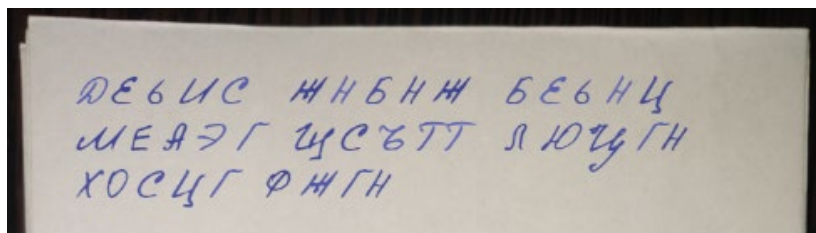 ДЕЬИС ЖНБНЖ БЕЬНЦ
МЕАЭГ ЩСЪТТ ЛЮЧУГН
ХОСЦГ ФЖГН